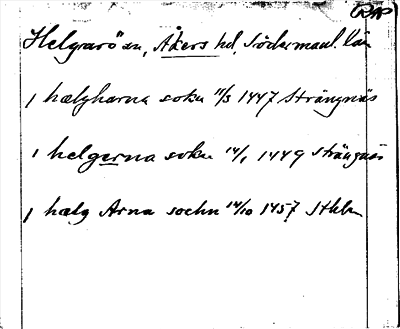 RAP
Helgarö sn, Åkers hd, Södermanl. län
, hælgharna sokn 11/3 1447 Strängnäs
, helgerna sokn 14/1 1449 Strängnäs
, hælg Arna sochn 14/10 1457 Sthlm